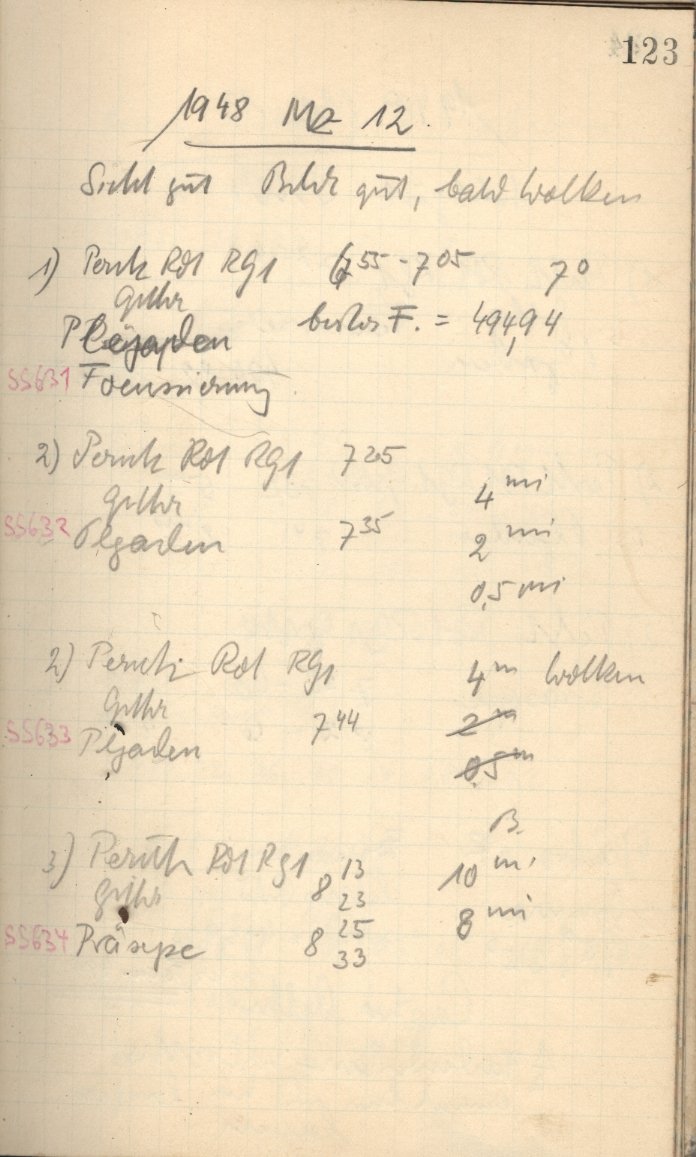 123
1948 Mz 12.
Sicht gut Bilder gut, bald Wolken
1) Perutz Rot RG1 6 55 - 7 05 7°
Gitter
Plejaden bester F. = 494,94
SS631 Focussierung
2) Perutz Rot RG1 7 25
Gitter 4 mi
SS632 Plejaden 7 35 2 mi
0,5 mi
2) Perutz Rot RG1 4 m Wolken
Gitter 2 m
SS633 Plejaden 7 44 0,5 m
B.
3) Perutz Rot RG1 8 13 10 mi
Gitter 23
SS634 Präsepe 8 25 8 mi
33